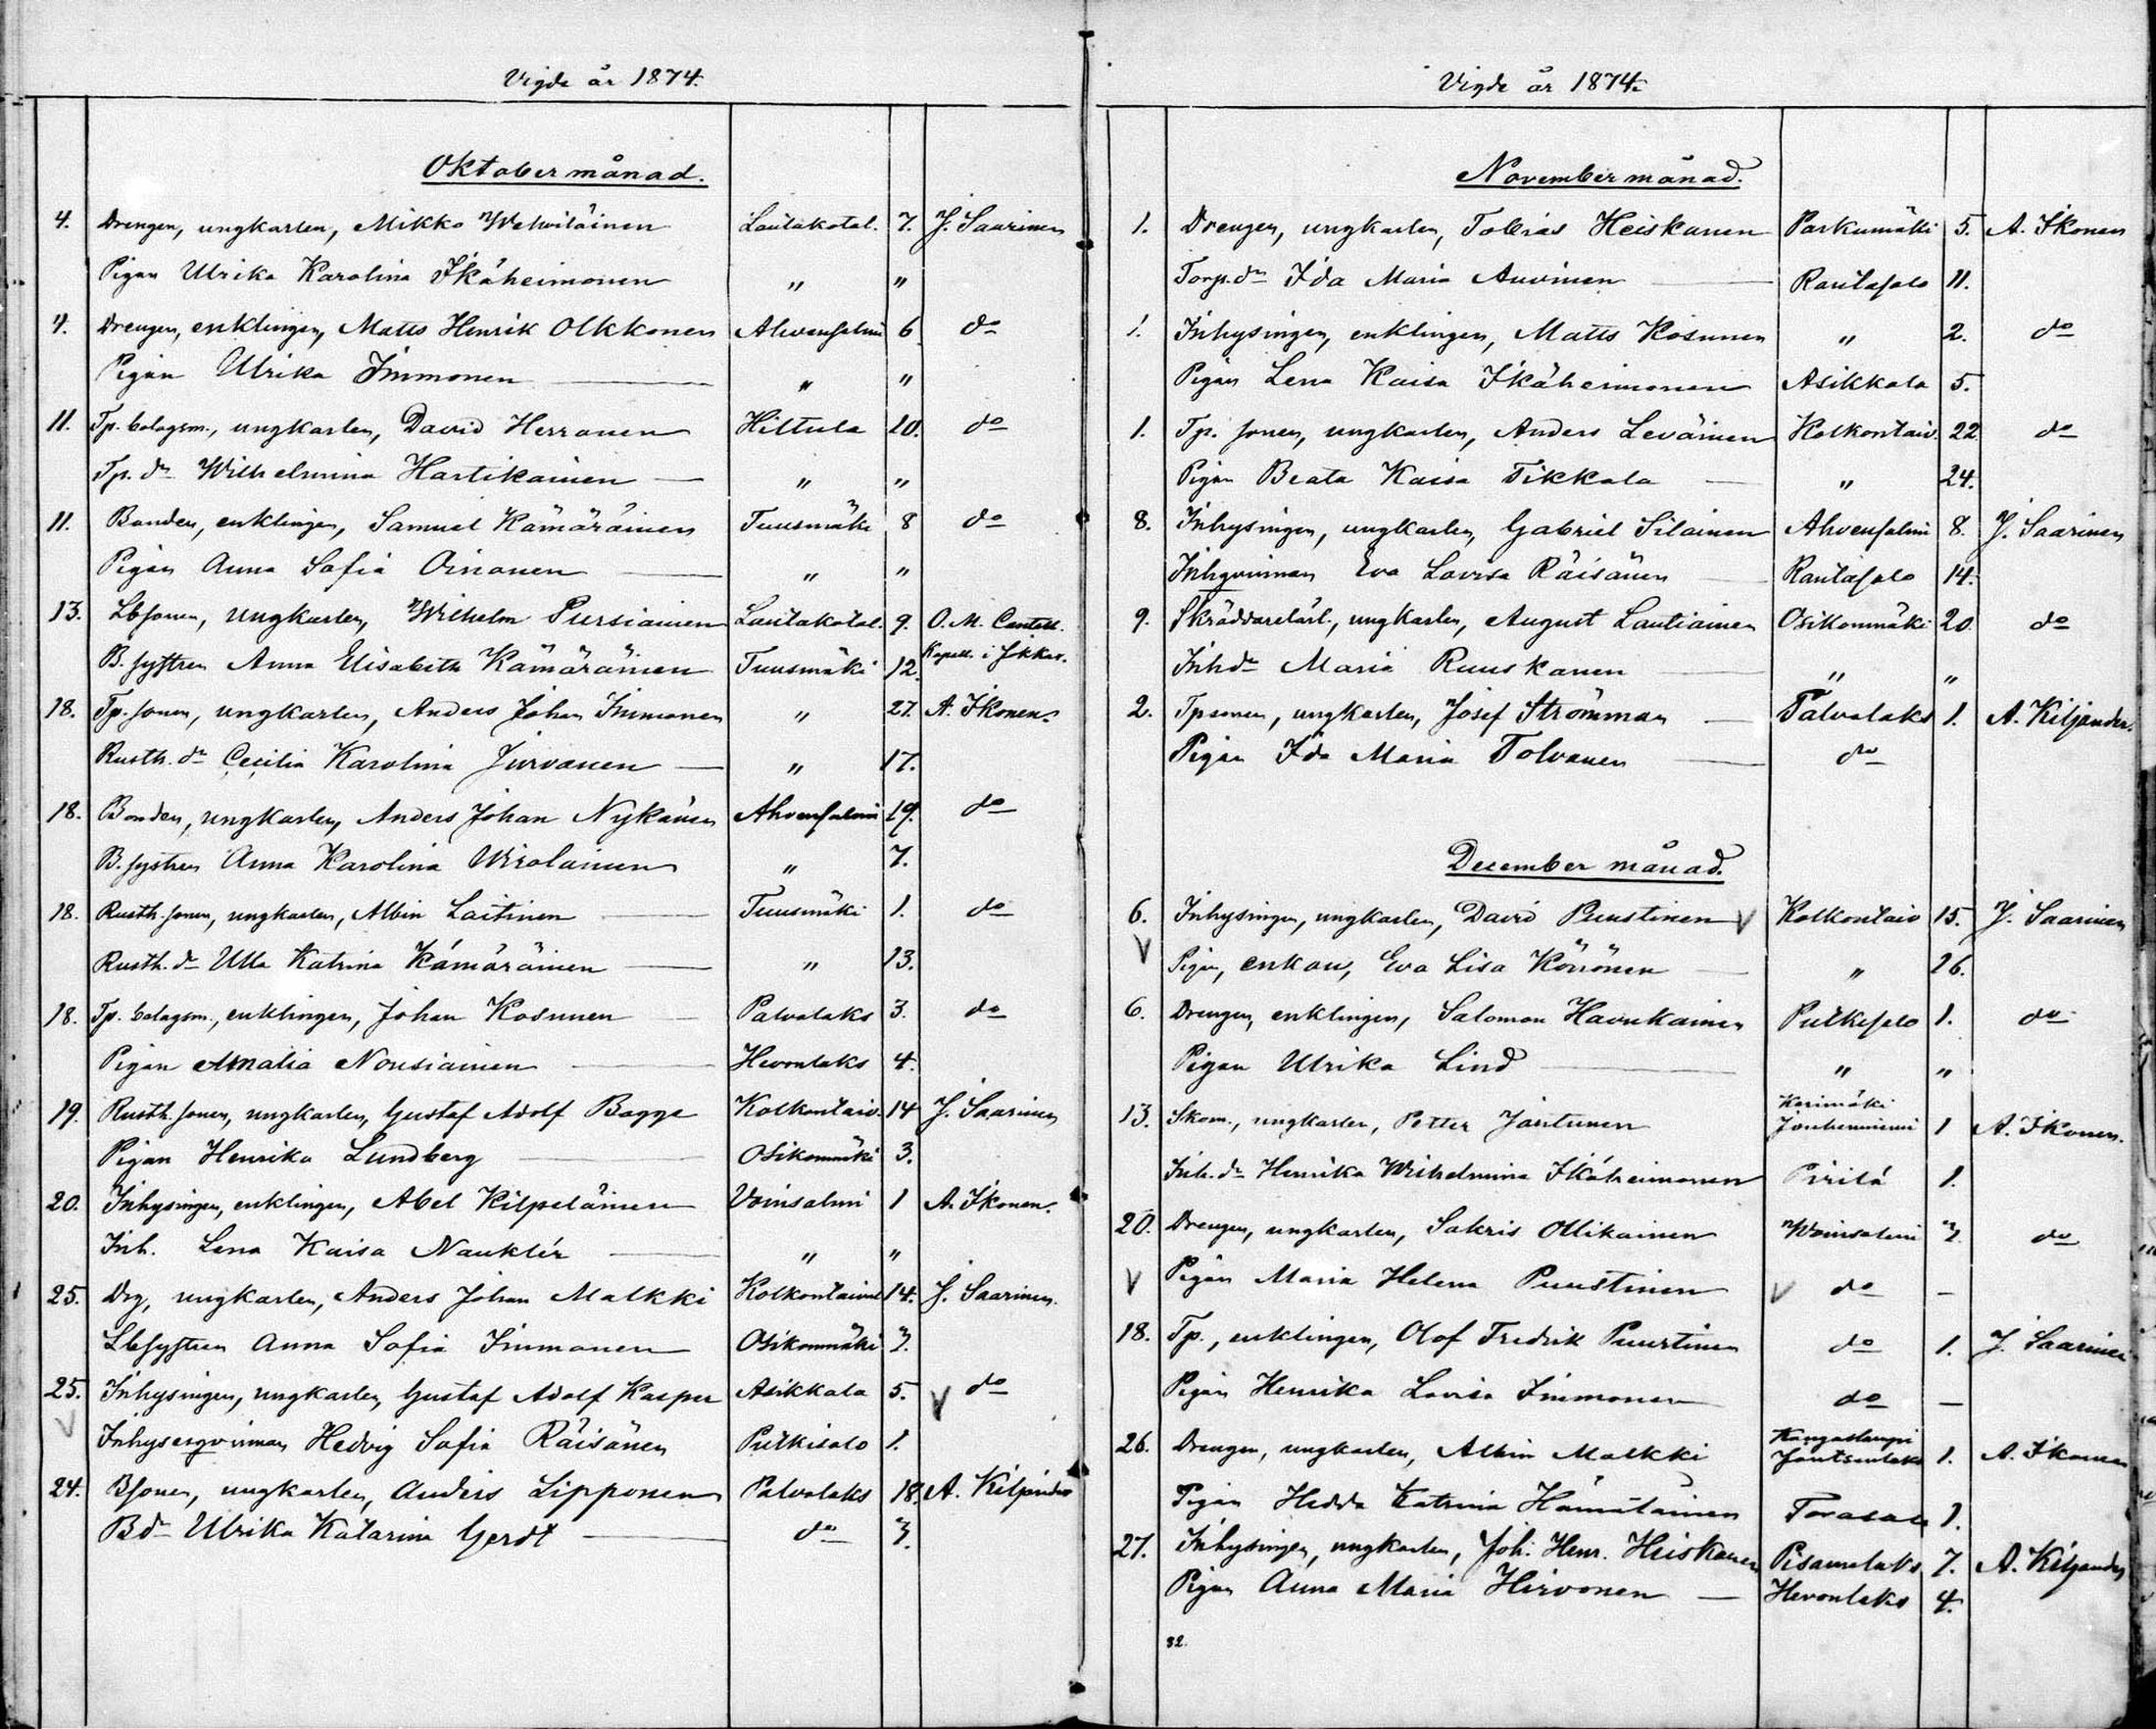 Vigde år 1874.
Oktober månad.
4. Drengen, ungkarlen, Mikko Wehviläinen Lautakotal. 7. J. Saarinen
Pigan Ulrika Karolina Ikäheimonen " "
4. Drengen, enklingen, Matts Henrik Olkkonen Ahvensalmi 6 do
Pigan Ulrika Immonen " "
11. Tp. bolagsm., ungkarlen, David Herranen Hiltula 20. do
Tp. dr Wilhelmina Hartikainen " "
11. Bonden, enklingen, Samuel Kämäräinen Tuusmäki 8 do
Pigan Anna Sofia Oinonen " "
13. Lbsonen, ungkarlen, Wilhelm Pursiainen Lautakotal. 9. O. M. Cantell.
B. systren Anna Elisabeth Kämäräinen Tuusmäki 12. Kapell. i Jokkas.
18. Tp. sonen, ungkarlen, Anders Johan Immonen " 27. A. Ikonen.
Rusth. dr Cecilia Karolina Jurvanen " 17.
18. Bonden, ungkarlen, Anders Johan Nykänen Ahvensalmi 19. do
B. systren Anna Karolina Wirolainen " 7.
18. Rusth. sonen, ungkarlen, Albin Laitinen Tuusmäki 1. do
Rusth. dr Ulla Katrina Kämäräinen " 13.
18. Tp. bolagsm., enklingen, Johan Kosunen Palvalaks 3. do
Pigan Amalia Nousiainen Hevonlaks 4.
19. Rusth. sonen, ungkarlen, Gustaf Adolf Bagge Kolkontaiv. 14 J. Saarinen
Pigan Henrika Lundberg Osikonmäki 3.
20. Inhysingen, enklingen, Abel Kilpeläinen Voinsalmi 1 A. Ikonen.
Inh. Lena Kaisa Nauklér " "
25. Drg, ungkarlen, Anders Johan Malkki Kolkontaival 14. J. Saarinen.
Lbsystren Anna Sofia Immonen Osikonmäki 7.
25. Inhysingen, ungkarlen, Gustaf Adolf Kasper Asikkala 5. V do
V Inhysesqvinnan Hedvig Sofia Räisänen Putkisalo 1.
24. Bsonen, ungkarlen, Anders Lipponen Palvalaks 18. A. Kiljander
Bdr Ulrika Katarina Gerdt do 7.
Vigde år 1874.
November månad.
1. Drengen, ungkarlen, Tobias Heiskanen Parkumäki 5. A. Ikonen
Torp. dr Ida Maria Auvinen Rantasalo 11.
1. Inhysingen, enklingen, Matts Kosunen " 2. do
Pigan Lena Kaisa Ikäheimonen Asikkala 5.
1. Tp. sonen, ungkarlen, Anders Leväinen Kolkontaiv. 22. do
Pigan Beata Kaisa Tikkala " 24.
8. Inhysingen, ungkarlen, Gabriel Silainen Ahvensalmi 8. J. Saarinen
Inhqvinnan Eva Lovisa Räisänen Rantasalo 14.
9. Skräddarelärl., ungkarlen, August Lautiainen Osikonmäki 20 do
Inhdr Maria Ruuskanen " "
2. Tpsonen, ungkarlen, Josef Strömman Palvalaks 1. A. Kiljander.
Pigan Ida Maria Tolvanen do
December månad.
6. Inhysingen, ungkarlen, David Puustinen V Kolkontaiv 15. J. Saarinen
V Pigan, enkan, Eva Lisa Könönen " 26.
6. Drengen, enklingen, Salomon Haukkainen Putkisalo 1. do
Pigan Ulrika Lind " "
Kerimäki
13. Skom., ungkarlen, Petter Jantunen Jouhenniemi 1 A. Ikonen.
Inh. dr Henrika Wilhelmina Ikäheimonen Pirilä 1.
20. Drengen, ungkarlen, Sakris Ollikainen Woinsalmi 7. do
V Pigan Maria Helena Puustinen V do –
18. Tp., enklingen, Olof Fredrik Puustinen do 1. J. Saarinen
Pigan Henrika Lovisa Immonen do –
Kangaslampi
26. Drengen, ungkarlen, Albin Malkki 1. A. Ikonen
Pigan Hedda Katrina Hämäläinen Torasalo 1.
27. Inhysingen, ungkarlen, Joh. Henr. Heiskanen Pisamalaks 7. A. Kiljander
Pigan Anna Maria Hirvonen Hevonlaks 4.
32.